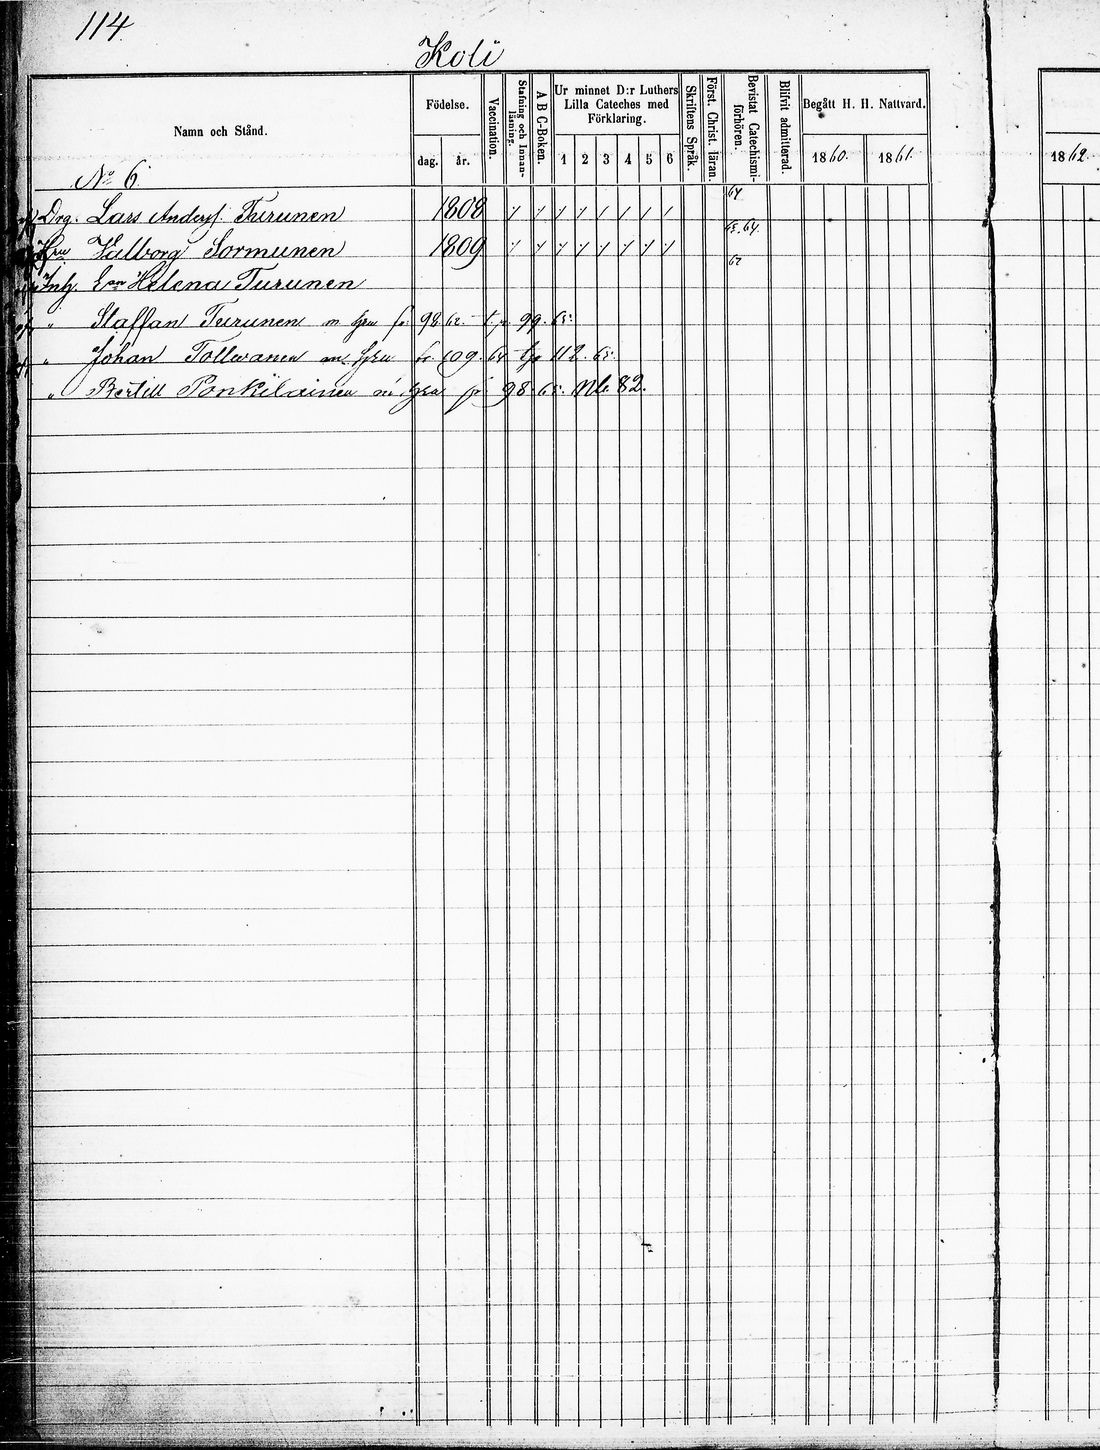 114
Koli
Namn och Stånd.
Födelse.
dag. år.
Vaccination.
Stafning och Innanläsning.
A B C-Boken.
Ur minnet D:r Luthers Lilla Cateches med Förklaring.
1 2 3 4 5 6
Skriftens Språk.
Först. Christ. läran.
Bevistat Catechismiförhören.
Blifvit admitterad.
Begått H. H. Nattvard.
1860. 1861.
1862.
No 6
Drg. Lars Andersf. Turunen 1808 64
Hru Valborg Sormunen 1809 63. 64.
Inh. Enk Helena Turunen 62
" Staffan Turunen m hru fr. 98. 62. t. p. 99. 65.
" Johan Tollwanen m hru fr 109. 64 tp 112. 65.
" Bertill Ponkilainen m hru fr 98. 65. Nb. 82.